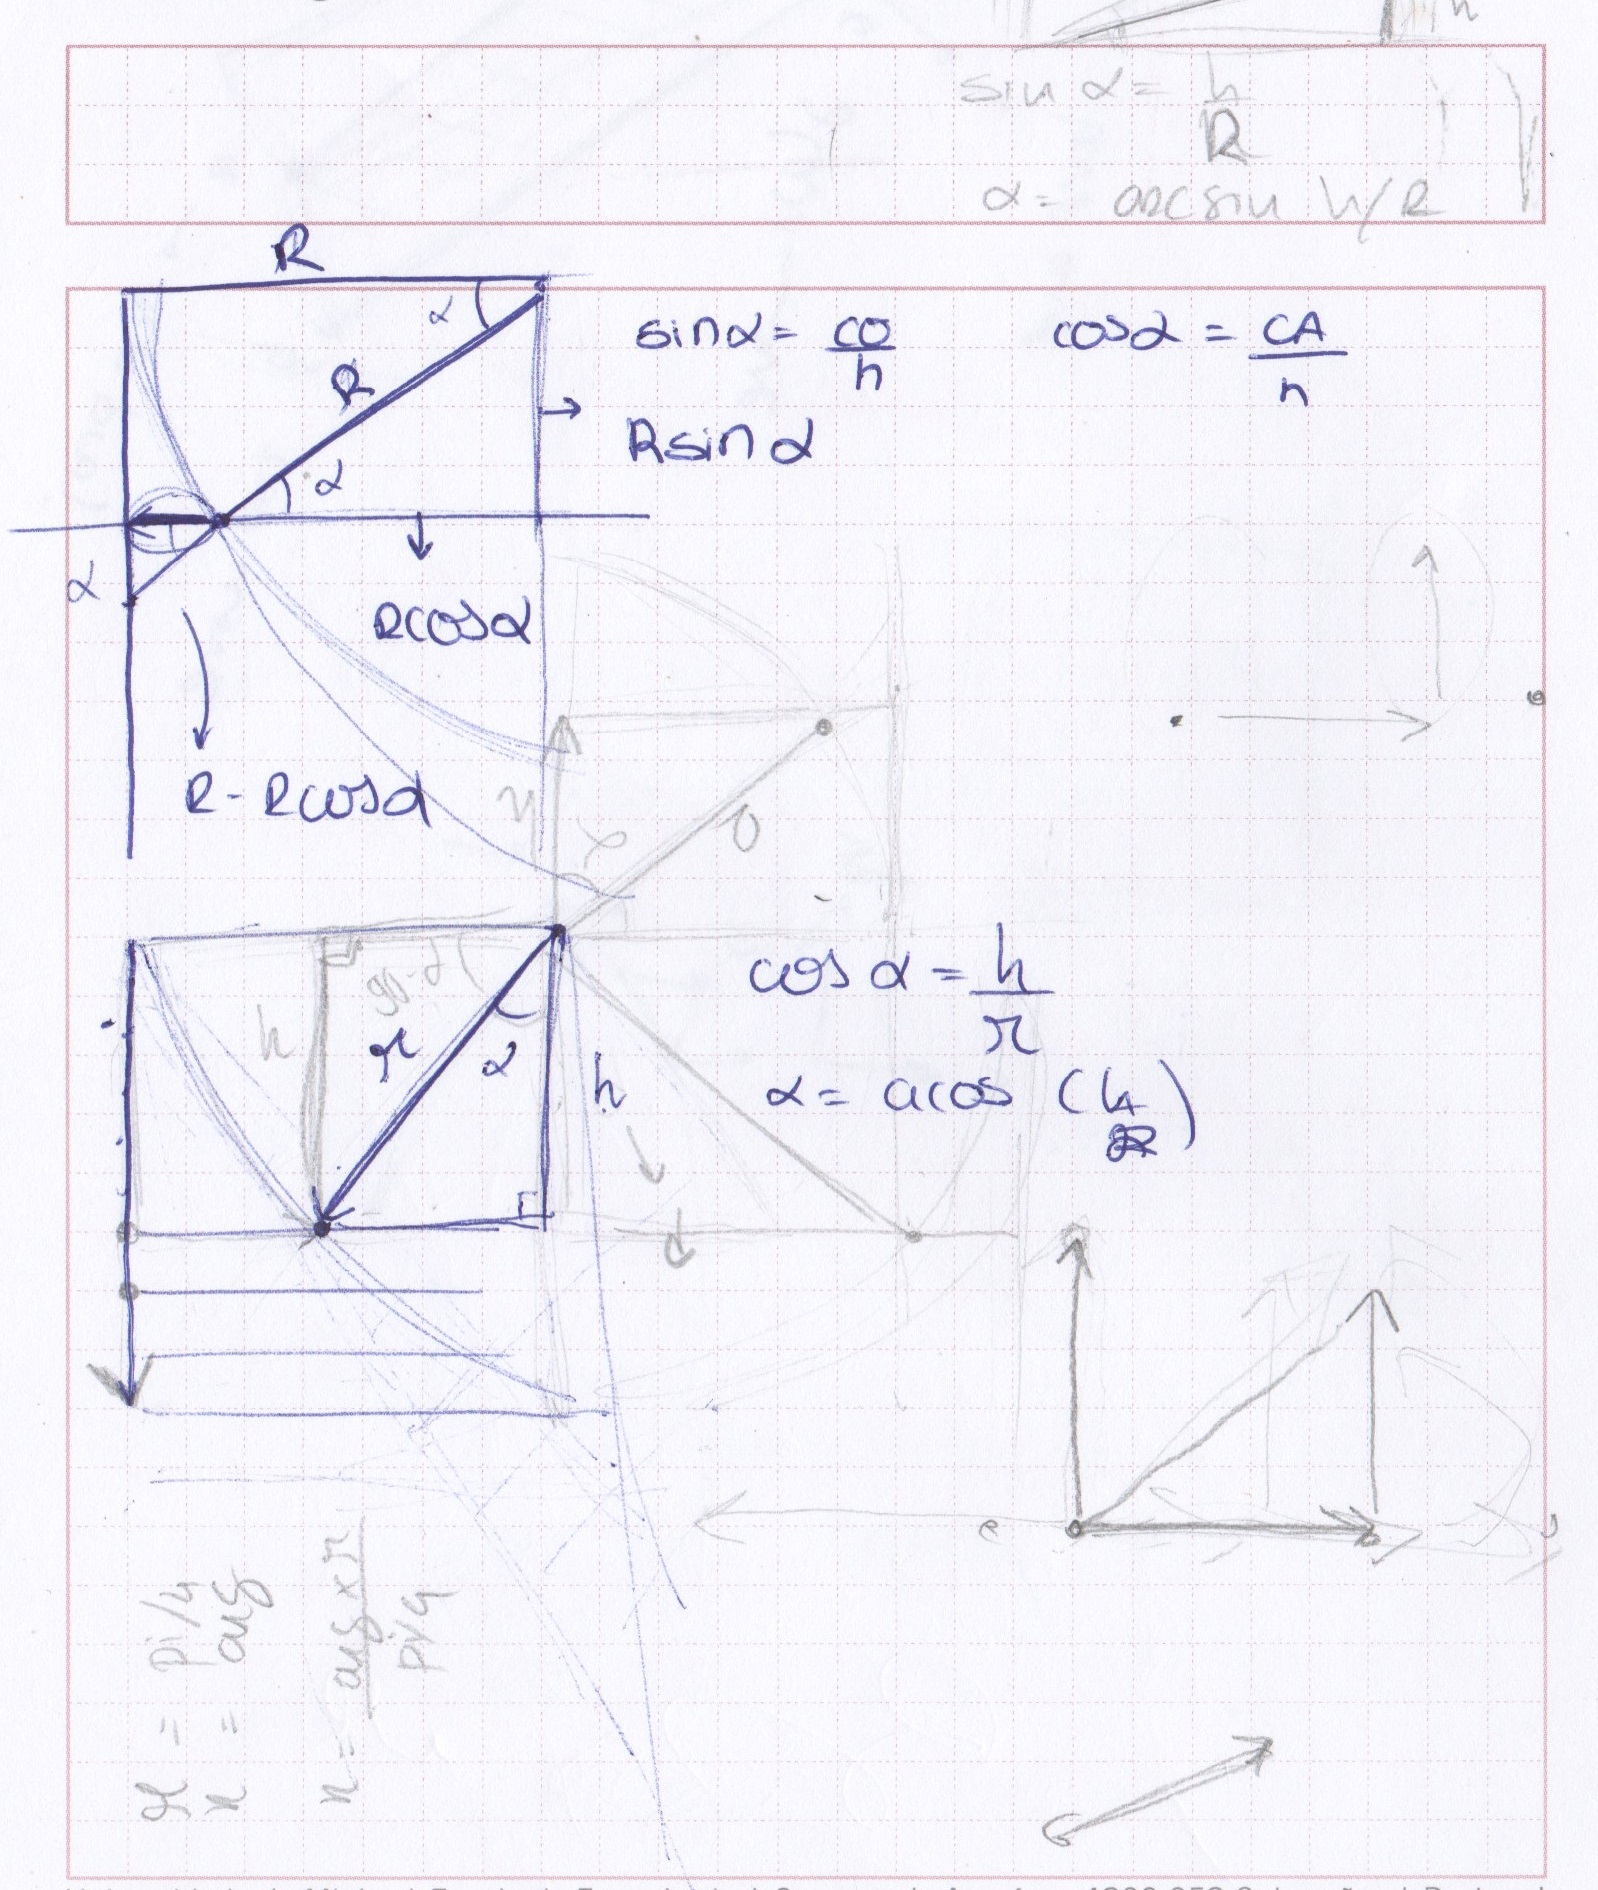 h
sin α = h/R
α = arcsin h/R
R
α
sinα = CO/h
cosα = CA/h
R
Rsin α
α
α
Rcosα
R - Rcosα
90-α
h
r
α
h
cos α = h/r
α = acos (h/R)
r = pi/4
x = ang
x = ang × r / pi/4